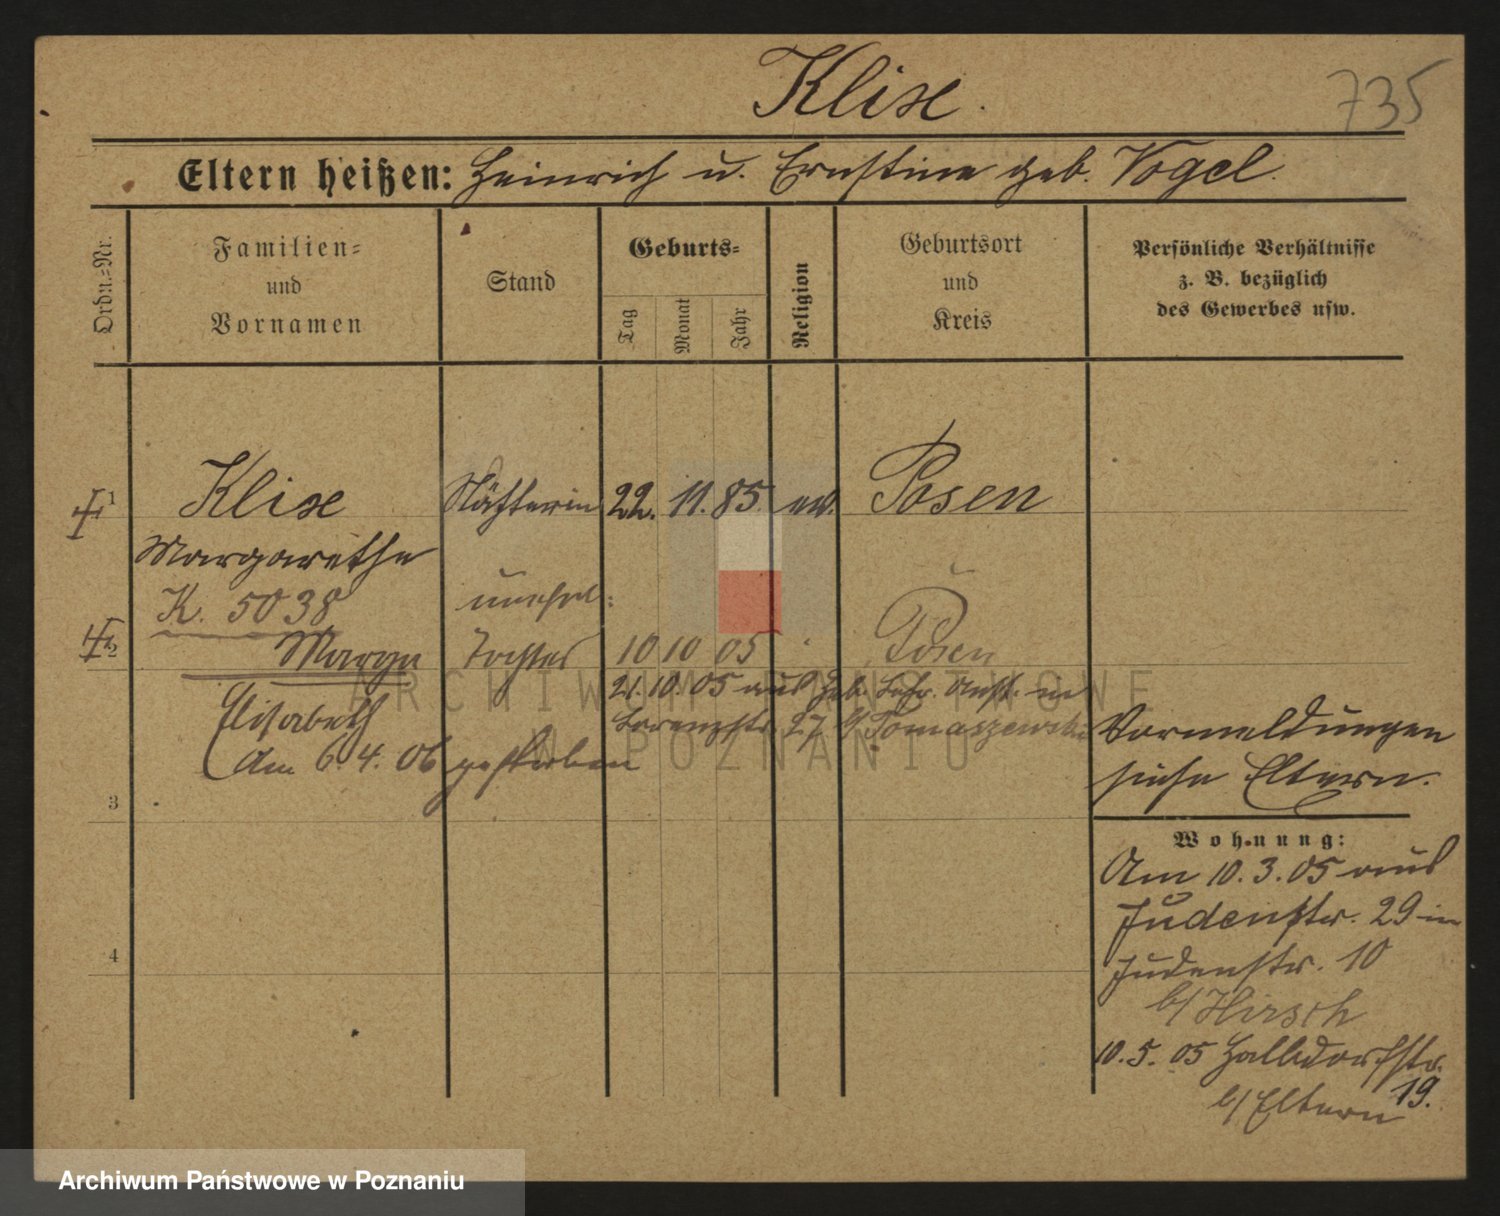 Klix.
735
Eltern heißen: Heinrich u. Ernstine geb. Vogel.
Ordn.=Nr.
Familien=
und
Vornamen
Stand
Geburts=
Tag
Monat
Jahr
Religion
Geburtsort
und
Kreis
Persönliche Verhältnisse
z. B. bezüglich
des Gewerbes usw.
1
Klix Näherin 22. 11. 85. ev. Posen
Margarethe
K. 5038
unehel:
2
Marga Tochter 10 10 05 Posen
21. 10. 05 aus Heb. Lehr. Anst. in
Elisabeth
27 b/ Tomaszewski
Am 6.4.06 gestorben
Vormeldungen
siehe Eltern.
3
Wohnung:
Am 10.3.05 aus
Judenstr. 29 in
Judenstr. 10
b/ Hirsch
4
10.5.05 Halbdorfstr.
19.
b/ Eltern
ARCHIWUM PAŃSTWOWE
W POZNANIU
Archiwum Państwowe w Poznaniu